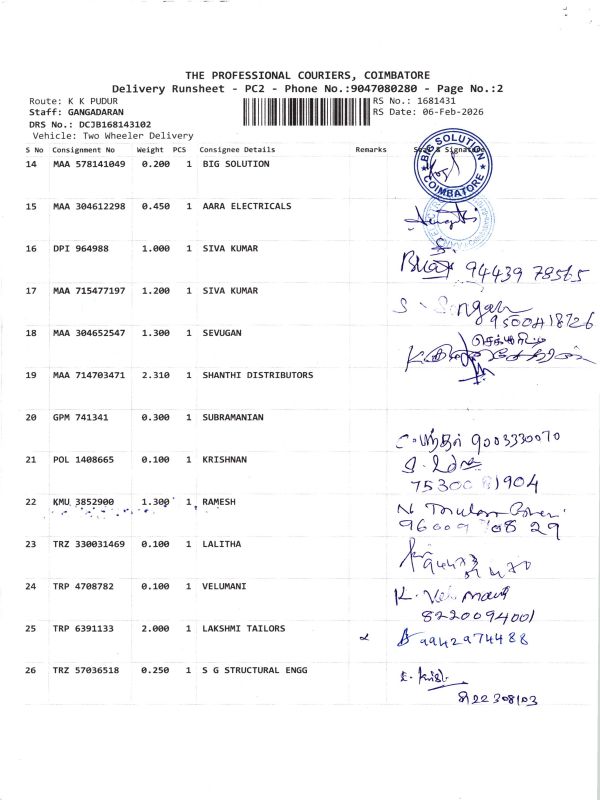 THE PROFESSIONAL COURIERS, COIMBATORE
Delivery Runsheet - PC2 - Phone No.:9047080280 - Page No.:2
Route: K K PUDUR RS No.: 1681431
Staff: GANGADARAN RS Date: 06-Feb-2026
DRS No.: DCJB168143102
Vehicle: Two Wheeler Delivery
S No Consignment No Weight PCS Consignee Details Remarks
BIG SOLUTION
COIMBATORE
14 MAA 578141049 0.200 1 BIG SOLUTION
15 MAA 304612298 0.450 1 AARA ELECTRICALS
16 DPI 964988 1.000 1 SIVA KUMAR
94439 78565
17 MAA 715477197 1.200 1 SIVA KUMAR
9500418726
18 MAA 304652547 1.300 1 SEVUGAN
19 MAA 714703471 2.310 1 SHANTHI DISTRIBUTORS
20 GPM 741341 0.300 1 SUBRAMANIAN
9003330070
21 POL 1408665 0.100 1 KRISHNAN
75300 81904
22 KMU 3852900 1.300 1 RAMESH
96009 708 29
23 TRZ 330031469 0.100 1 LALITHA
24 TRP 4708782 0.100 1 VELUMANI
8220094001
25 TRP 6391133 2.000 1 LAKSHMI TAILORS
9942974488
26 TRZ 57036518 0.250 1 S G STRUCTURAL ENGG